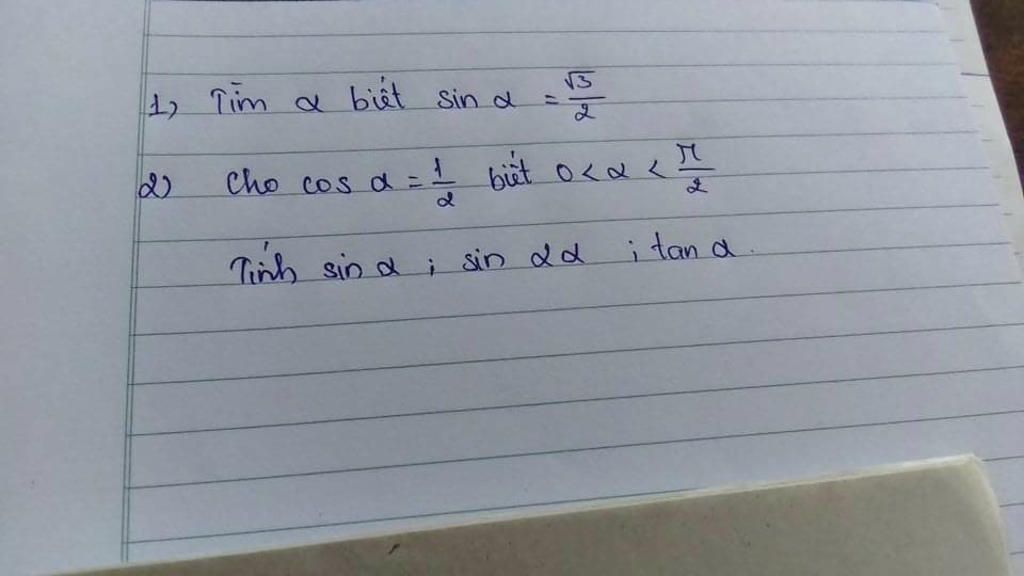 1) Tìm α biết sin α = √3/2
2) Cho cos α = 1/2 biết 0 < α < π/2
Tính sin α ; sin 2α ; tan α.